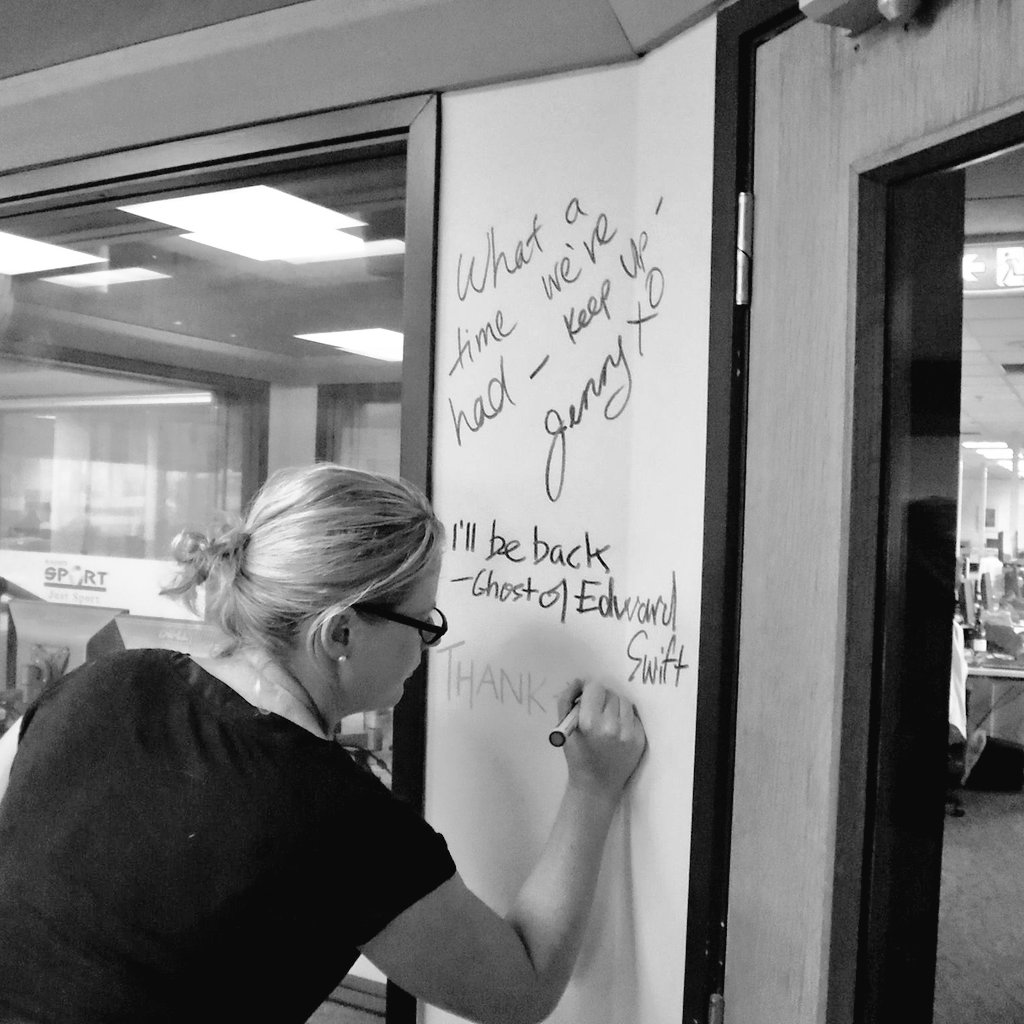 What a
time we're
had - keep up!
Jenny xo
I'll be back
-Ghost of Edward
Swift
THANK
SPORT
Just Sport